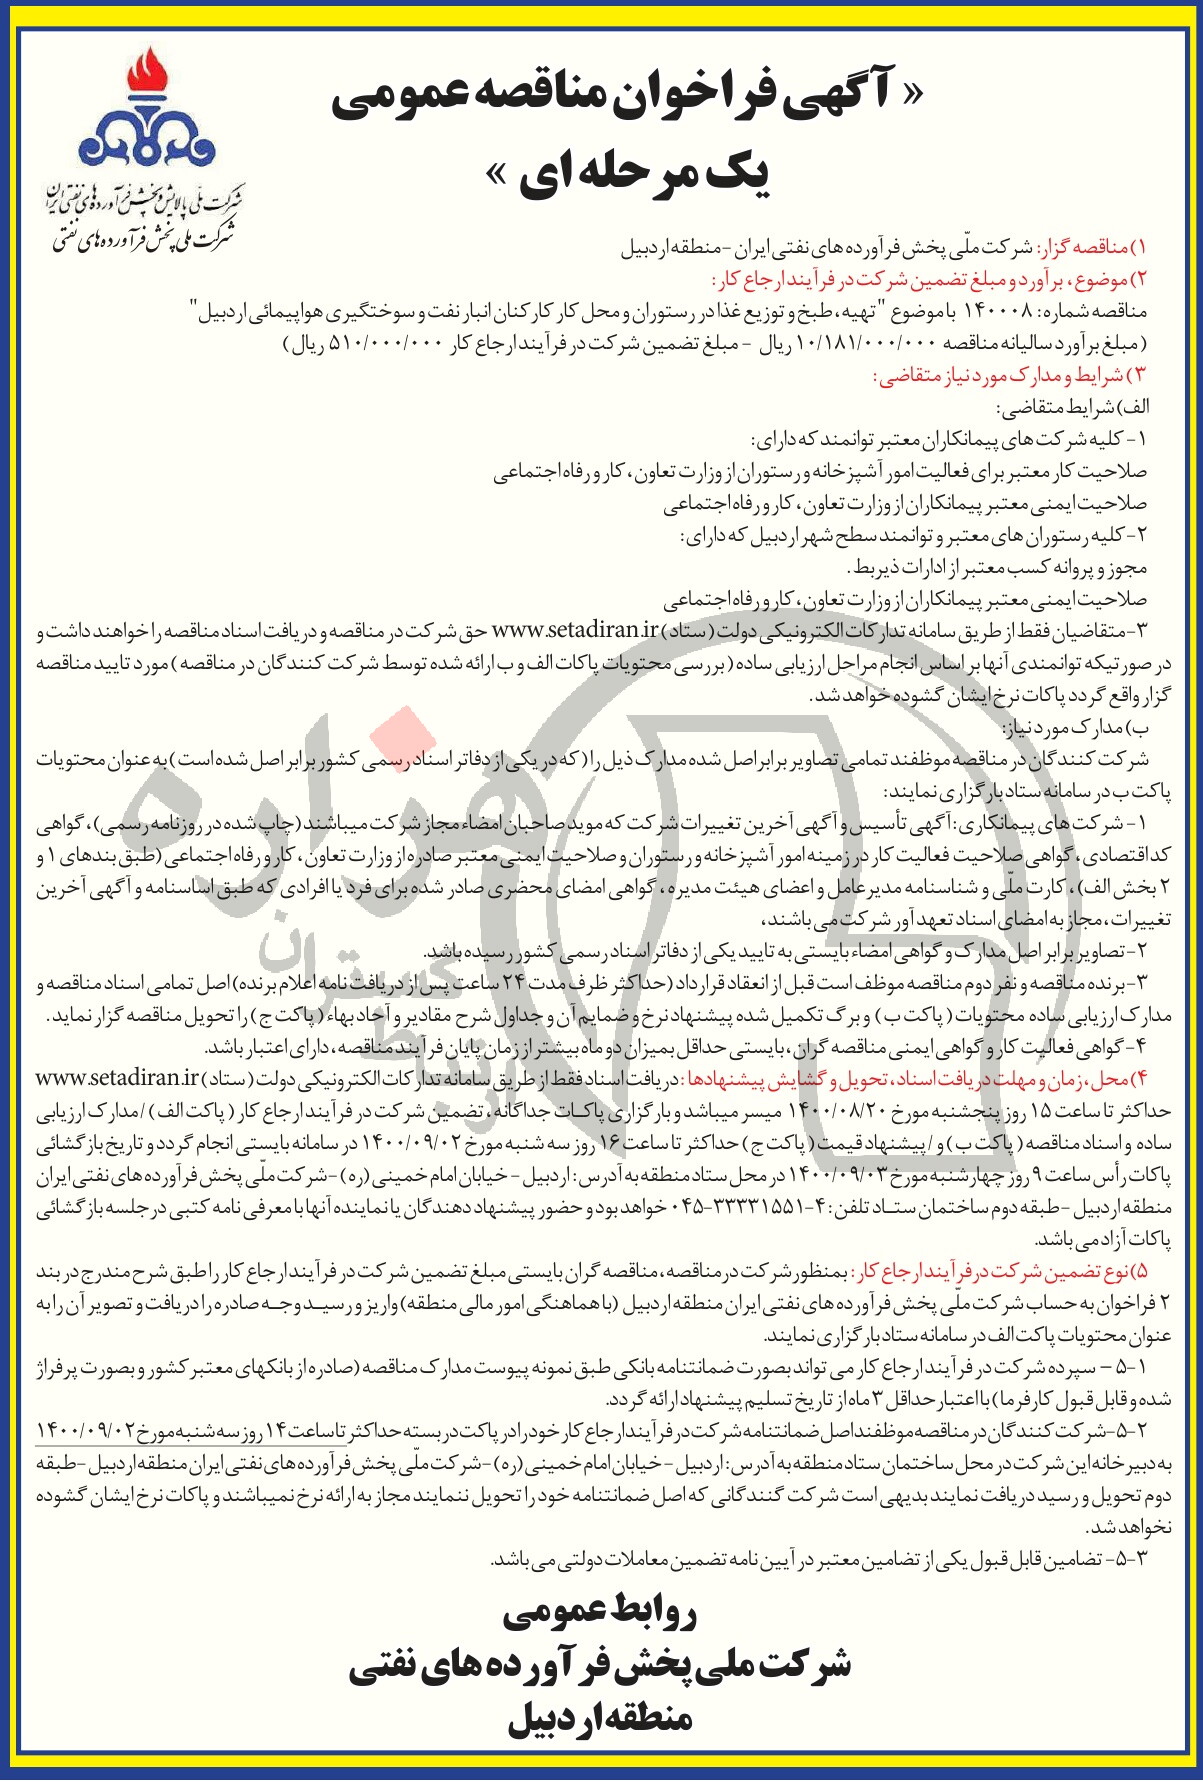 « آگهی فراخوان مناقصه عمومی
یک مرحله ای »
شرکت ملی پالایش و پخش فرآورده‌های نفتی ایران
شرکت ملی پخش فرآورده‌های نفتی
۱) مناقصه گزار: شرکت ملّی پخش فرآورده های نفتی ایران - منطقه اردبیل
۲) موضوع، برآورد و مبلغ تضمین شرکت در فرآیند ارجاع کار:
مناقصه شماره: ۱۴۰۰۰۸ با موضوع "تهیه، طبخ و توزیع غذا در رستوران و محل کار کارکنان انبار نفت و سوختگیری هواپیمائی اردبیل"
(مبلغ برآورد سالیانه مناقصه ۱۰/۱۸۱/۰۰۰/۰۰۰ ریال - مبلغ تضمین شرکت در فرآیند ارجاع کار ۵۱۰/۰۰۰/۰۰۰ ریال)
۳) شرایط و مدارک مورد نیاز متقاضی:
الف) شرایط متقاضی:
۱- کلیه شرکت های پیمانکاران معتبر توانمند که دارای:
صلاحیت کار معتبر برای فعالیت امور آشپزخانه و رستوران از وزارت تعاون، کار و رفاه اجتماعی
صلاحیت ایمنی معتبر پیمانکاران از وزارت تعاون، کار و رفاه اجتماعی
۲- کلیه رستوران های معتبر و توانمند سطح شهر اردبیل که دارای:
مجوز و پروانه کسب معتبر از ادارات ذیربط .
صلاحیت ایمنی معتبر پیمانکاران از وزارت تعاون، کار و رفاه اجتماعی
۳-متقاضیان فقط از طریق سامانه تدارکات الکترونیکی دولت (ستاد) www.setadiran.ir حق شرکت در مناقصه و دریافت اسناد مناقصه را خواهند داشت و
در صورتیکه توانمندی آنها بر اساس انجام مراحل ارزیابی ساده (بررسی محتویات پاکات الف و ب ارائه شده توسط شرکت کنندگان در مناقصه) مورد تایید مناقصه
گزار واقع گردد پاکات نرخ ایشان گشوده خواهد شد.
ب) مدارک مورد نیاز:
شرکت کنندگان در مناقصه موظفند تمامی تصاویر برابر اصل شده مدارک ذیل را (که در یکی از دفاتر اسناد رسمی کشور برابر اصل شده است) به عنوان محتویات
پاکت ب در سامانه ستاد بارگزاری نمایند:
۱- شرکت های پیمانکاری: آگهی تأسیس و آگهی آخرین تغییرات شرکت که موید صاحبان امضاء مجاز شرکت میباشند (چاپ شده در روزنامه رسمی)، گواهی
کد اقتصادی، گواهی صلاحیت فعالیت کار در زمینه امور آشپزخانه و رستوران و صلاحیت ایمنی معتبر صادره از وزارت تعاون، کار و رفاه اجتماعی (طبق بندهای ۱ و
۲ بخش الف)، کارت ملّی و شناسنامه مدیر عامل و اعضای هیئت مدیره، گواهی امضای محضری صادر شده برای فرد یا افرادی که طبق اساسنامه و آگهی آخرین
تغییرات، مجاز به امضای اسناد تعهد آور شرکت می باشند،
۲- تصاویر برابر اصل مدارک و گواهی امضاء بایستی به تایید یکی از دفاتر اسناد رسمی کشور رسیده باشد.
۳-برنده مناقصه و نفر دوم مناقصه موظف است قبل از انعقاد قرارداد (حداکثر ظرف مدت ۲۴ ساعت پس از دریافت نامه اعلام برنده) اصل تمامی اسناد مناقصه و
مدارک ارزیابی ساده محتویات (پاکت ب) و برگ تکمیل شده پیشنهاد نرخ و ضمایم آن و جداول شرح مقادیر و آحاد بهاء (پاکت ج) را تحویل مناقصه گزار نماید.
۴- گواهی فعالیت کار و گواهی ایمنی مناقصه گران، بایستی حداقل بمیزان دو ماه بیشتر از زمان پایان فرآیند مناقصه، دارای اعتبار باشد.
۴) محل، زمان و مهلت دریافت اسناد، تحویل و گشایش پیشنهادها: دریافت اسناد فقط از طریق سامانه تدارکات الکترونیکی دولت (ستاد) www.setadiran.ir
حداکثر تا ساعت ۱۵ روز پنجشنبه مورخ ۱۴۰۰/۰۸/۲۰ میسر میباشد و بارگزاری پاکات جداگانه، تضمین شرکت در فرآیند ارجاع کار (پاکت الف)/مدارک ارزیابی
ساده و اسناد مناقصه (پاکت ب) و/پیشنهاد قیمت (پاکت ج) حداکثر تا ساعت ۱۶ روز سه شنبه مورخ ۱۴۰۰/۰۹/۰۲ در سامانه بایستی انجام گردد و تاریخ بازگشائی
پاکات رأس ساعت ۹ روز چهارشنبه مورخ ۱۴۰۰/۰۹/۰۳ در محل ستاد منطقه به آدرس: اردبیل - خیابان امام خمینی (ره) - شرکت ملّی پخش فرآورده های نفتی ایران
منطقه اردبیل - طبقه دوم ساختمان ستاد تلفن: ۴-۳۳۳۳۱۵۵۱-۰۴۵ خواهد بود و حضور پیشنهاد دهندگان یا نماینده آنها با معرفی نامه کتبی در جلسه بازگشائی
پاکات آزاد می باشد.
۵) نوع تضمین شرکت در فرآیند ارجاع کار: بمنظور شرکت در مناقصه، مناقصه گران بایستی مبلغ تضمین شرکت در فرآیند ارجاع کار را طبق شرح مندرج در بند
۲ فراخوان به حساب شرکت ملّی پخش فرآورده های نفتی ایران منطقه اردبیل (با هماهنگی امور مالی منطقه) واریز و رسید وجه صادره را دریافت و تصویر آن را به
عنوان محتویات پاکت الف در سامانه ستاد بارگزاری نمایند.
۵-۱ – سپرده شرکت در فرآیند ارجاع کار می تواند بصورت ضمانتنامه بانکی طبق نمونه پیوست مدارک مناقصه (صادره از بانکهای معتبر کشور و بصورت پرفراژ
شده و قابل قبول کارفرما) با اعتبار حداقل ۳ ماه از تاریخ تسلیم پیشنهاد ارائه گردد.
۵-۲-شرکت کنندگان در مناقصه موظفند اصل ضمانتنامه شرکت در فرآیند ارجاع کار خود را در پاکت در بسته حداکثر تا ساعت ۱۴ روز سه شنبه مورخ ۱۴۰۰/۰۹/۰۲
به دبیرخانه این شرکت در محل ساختمان ستاد منطقه به آدرس: اردبیل - خیابان امام خمینی (ره) - شرکت ملّی پخش فرآورده های نفتی ایران منطقه اردبیل - طبقه
دوم تحویل و رسید دریافت نمایند بدیهی است شرکت گنندگانی که اصل ضمانتنامه خود را تحویل ننمایند مجاز به ارائه نرخ نمیباشند و پاکات نرخ ایشان گشوده
نخواهد شد.
۵-۳- تضامین قابل قبول یکی از تضامین معتبر در آیین نامه تضمین معاملات دولتی می باشد.
روابط عمومی
شرکت ملی پخش فرآورده های نفتی
منطقه اردبیل
هزاره
گستران
ارتباط